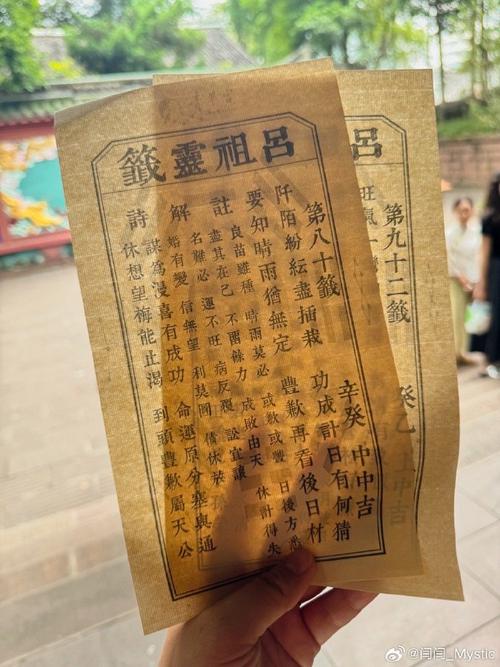 呂祖靈籤
第八十籤 辛癸 中中吉
阡陌紛紜盡插栽 功成計日有何猜
要知晴雨猶無定 豐歉再看後日材
註 良苗雖種 晴雨莫必 或歉或豐 日後方悉
盡其在己 不圖餘力 成敗由天 休計得失
解 名難必 運不旺 病反覆 訟宜讓
婚有變 信無望 利莫圖
詩 謀爲漫喜有成功 命運原分塞與通
休想望梅能止渴 到頭豐歉屬天公
呂
第九十二籤 癸 上中吉
旺氣一
@闩闩_Mystic